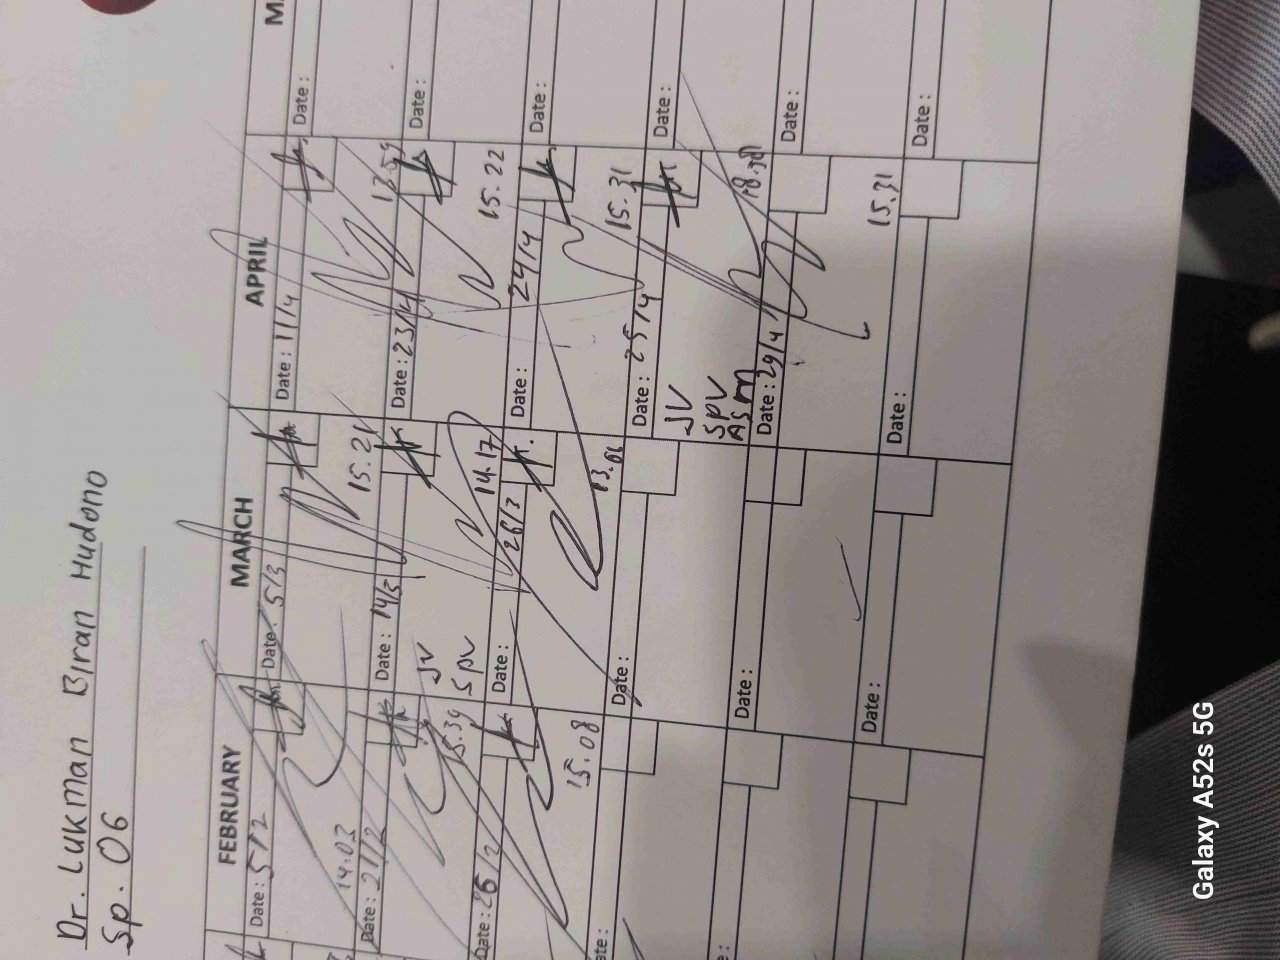 Dr. LUKMAN BIRAN HUDONO
Sp. OG
FEBRUARY
MARCH
APRIL
Date: 5/2
14.03
Date: 21/2
15.34
Date: 26/2
15.08
Date: 5/3
15.21
Date: 14/3
JV
SPV
14.17
Date: 26/3
13.06
Date:
Date:
Date:
Date: 11/4
13.59
Date: 23/4
15.22
Date: 24/4
15.31
Date: 25/4
JV
SPV
ASM
Date: 29/4
15.31
Date:
Date:
Date:
Date:
Date:
Date:
Date:
Galaxy A52s 5G